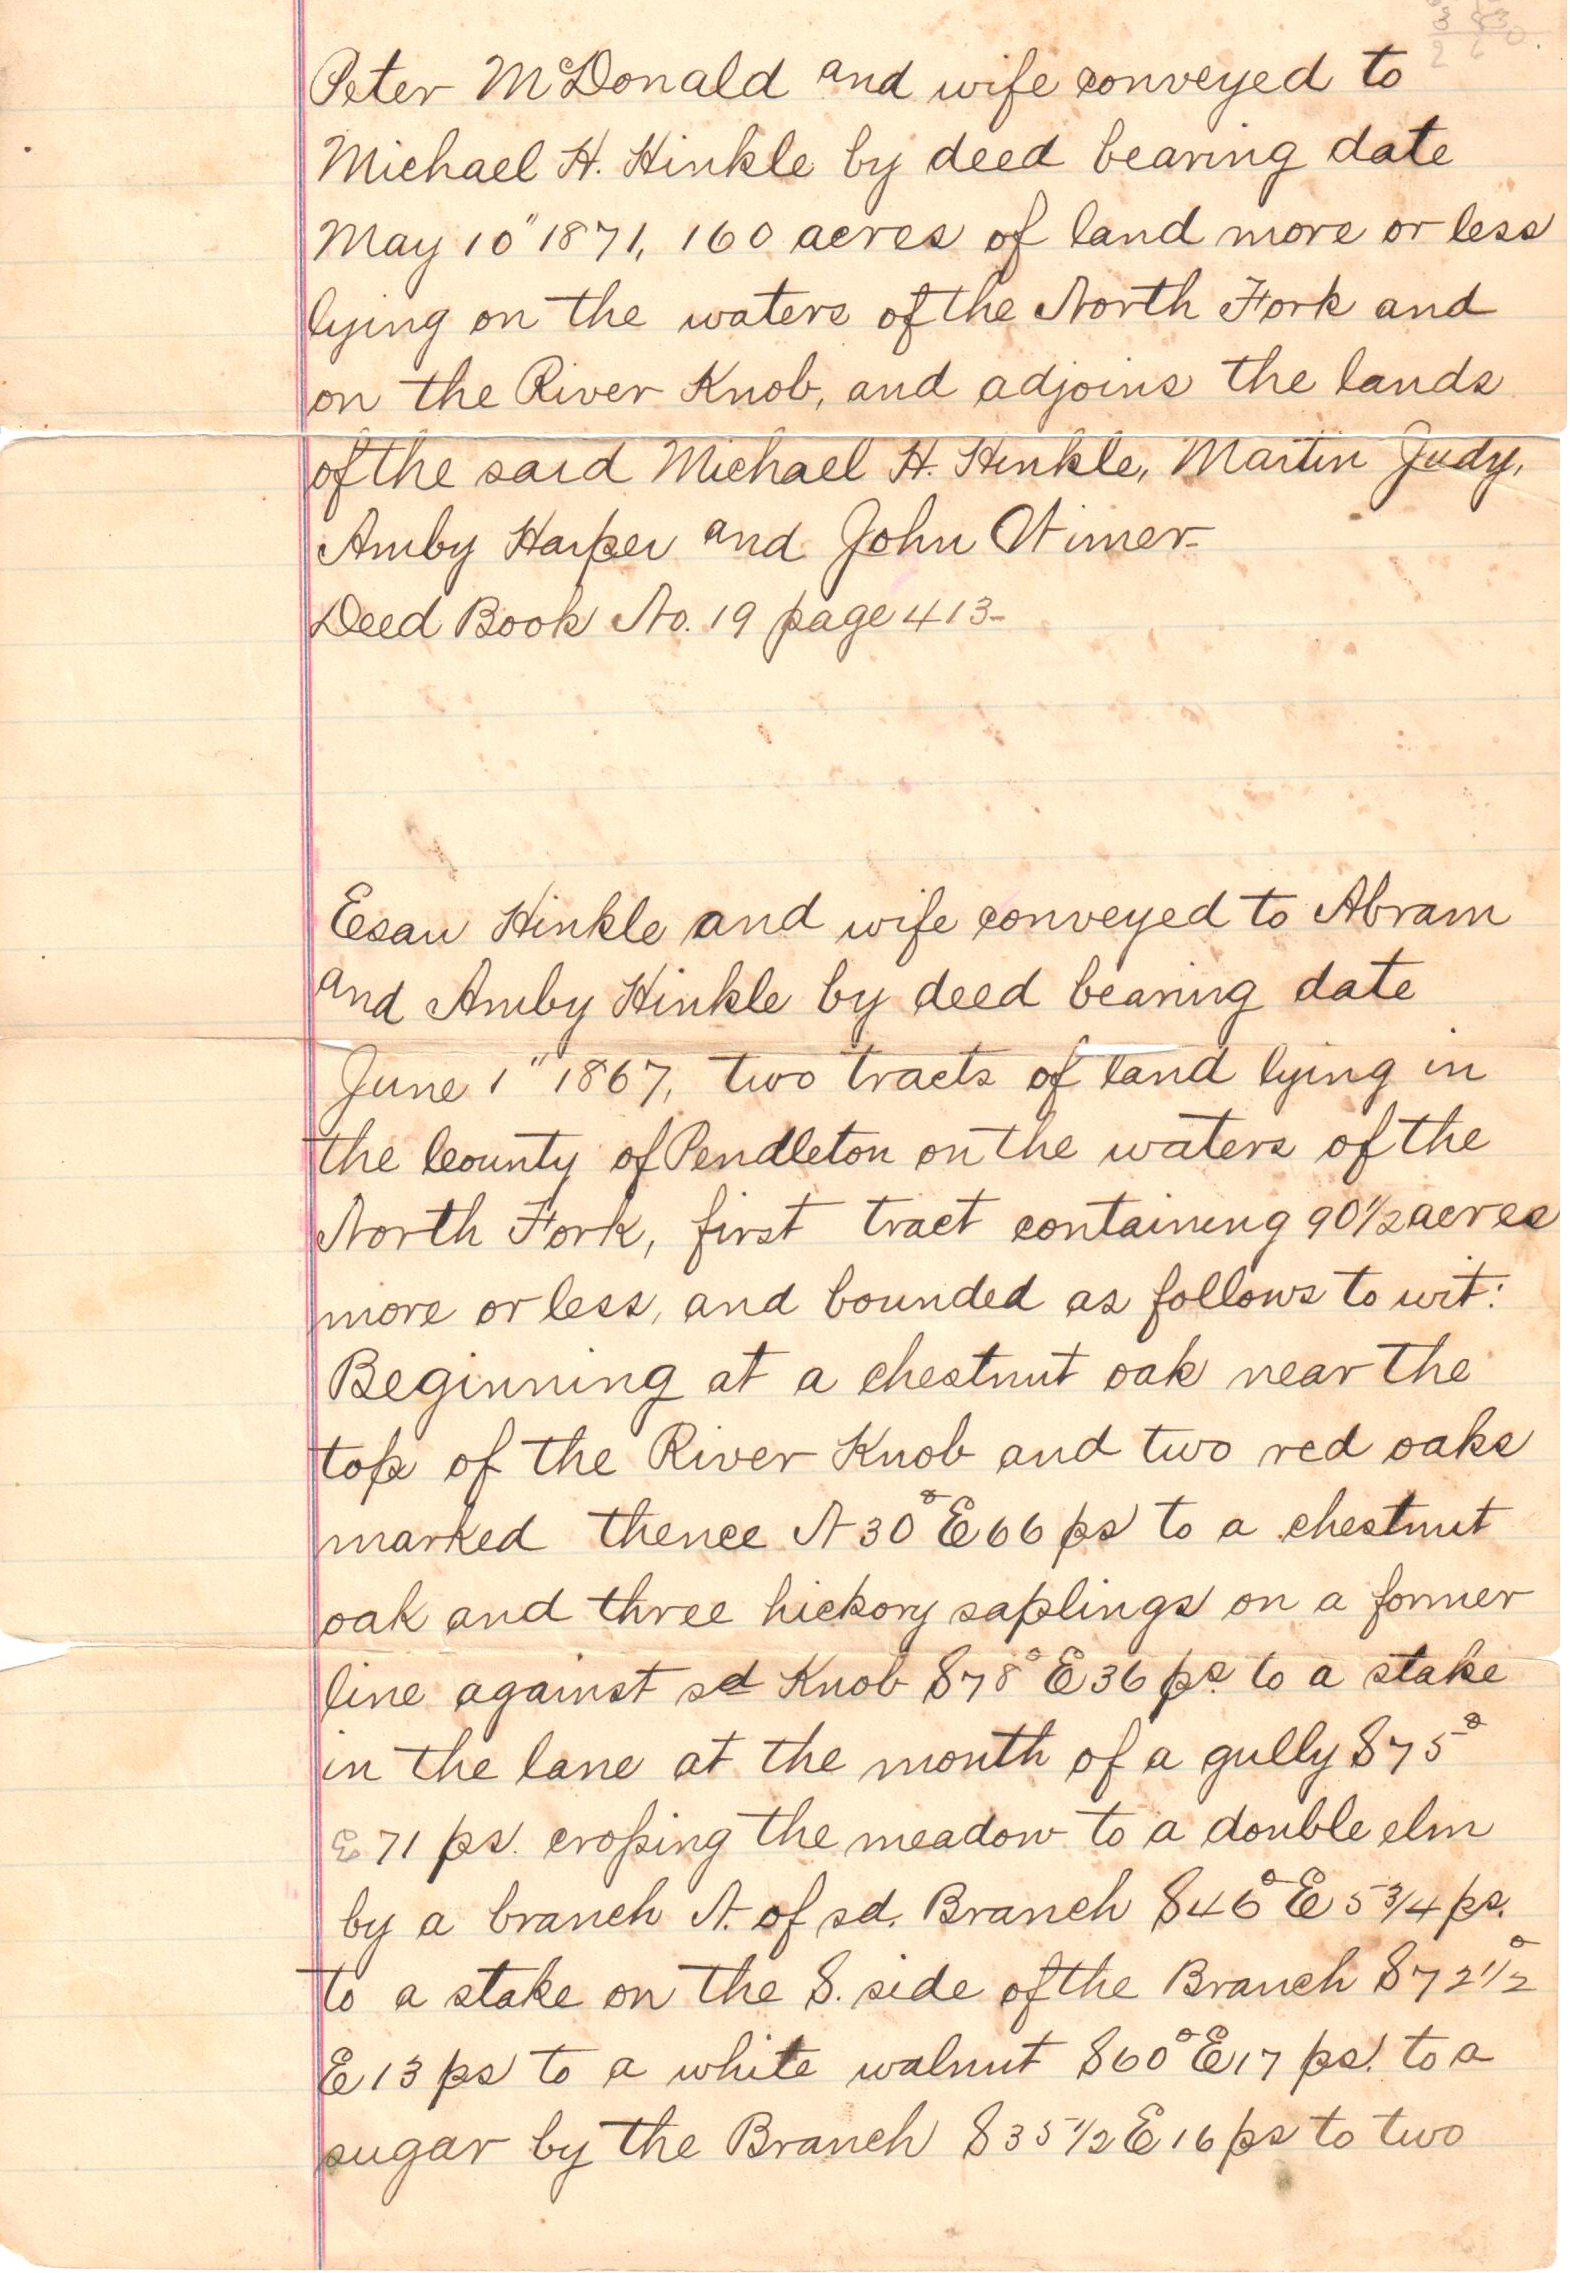 3 83
2 6 0.
Peter McDonald and wife conveyed to
Michael H. Hinkle by deed bearing date
May 10" 1871, 160 acres of land more or less
lying on the waters of the North Fork and
on the River Knob, and adjoins the lands
of the said Michael H. Hinkle, Martin Judy,
Amby Harper and John Wimer-
Deed Book No. 19 page 413-
Eesau Hinkle and wife conveyed to Abram
and Amby Hinkle by deed bearing date
June 1" 1867, two tracts of land lying in
the County of Pendleton on the waters of the
North Fork, first tract containing 90 1/2 acres
more or less, and bounded as follows to wit:
Beginning at a chestnut oak near the
top of the River Knob and two red oaks
marked thence N 30° E 66 ps to a chestnut
oak and three hickory saplings on a former
line against sd Knob S 78° E 36 ps. to a stake
in the lane at the mouth of a gully S 75°
E 71 ps. crossing the meadow to a double elm
by a branch N. of sd. Branch S 46° E 5 3/4 ps.
to a stake on the S. side of the Branch S 72 1/2°
E 13 ps to a white walnut S 60° E 17 ps. to a
sugar by the Branch S 35 1/2 E 16 ps to two